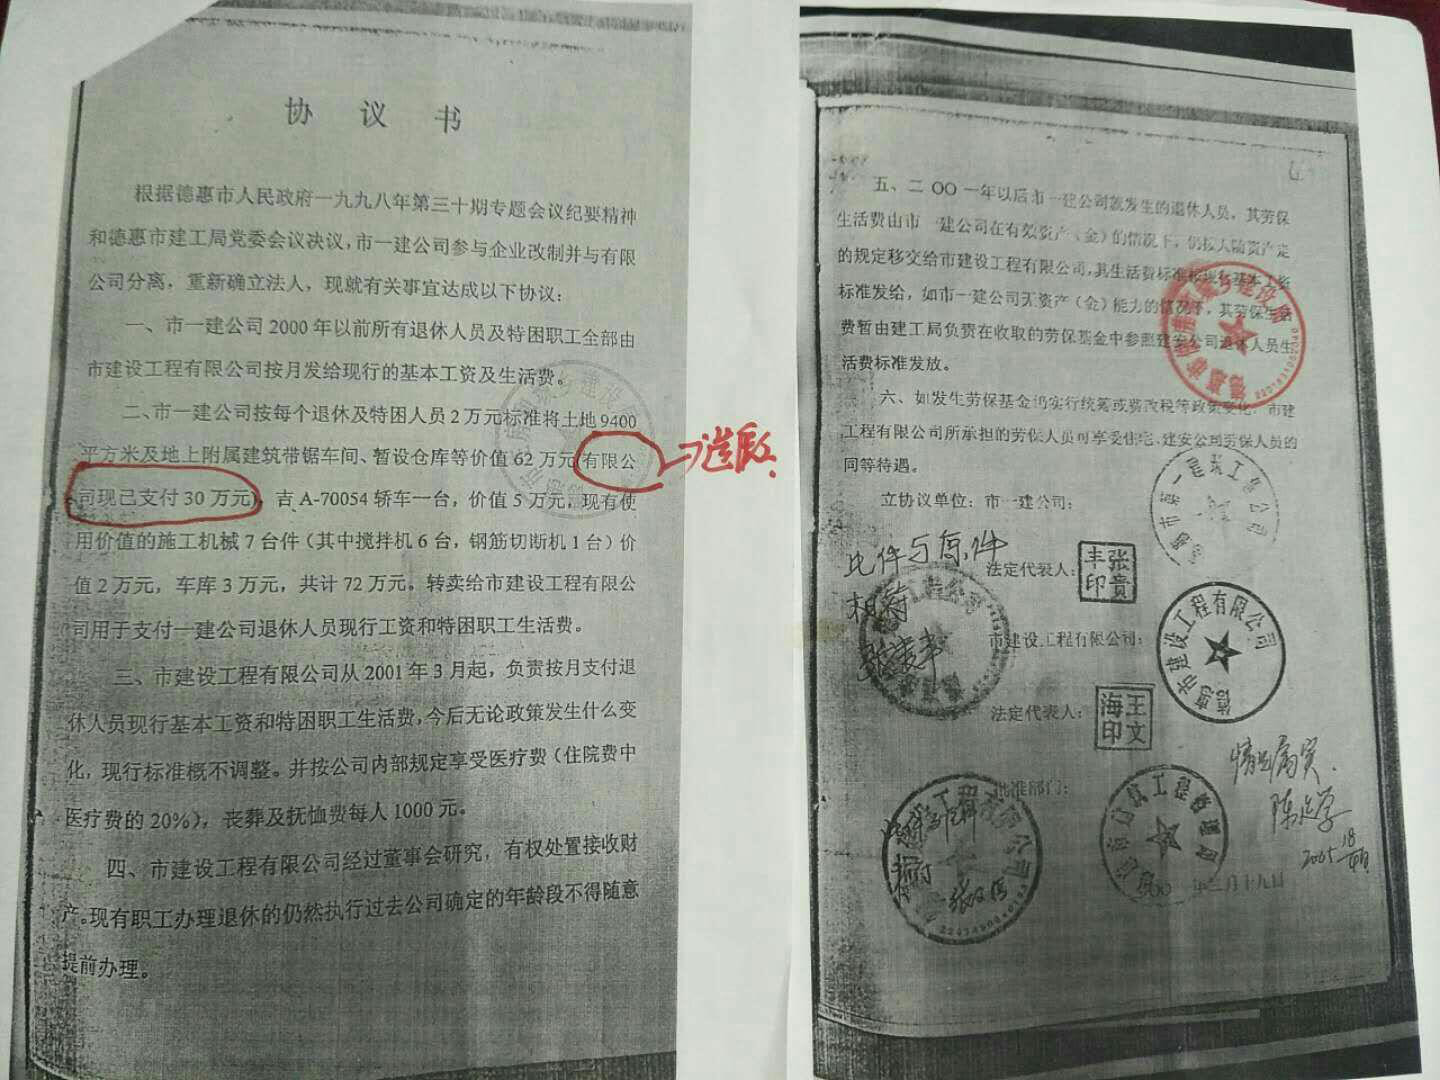 协 议 书
根据德惠市人民政府一九九八年第三十期专题会议纪要精神
和德惠市建工局党委会议决议，市一建公司参与企业改制并与有限
公司分离，重新确立法人，现就有关事宜达成以下协议：
一、市一建公司2000年以前所有退休人员及特困职工全部由
市建设工程有限公司按月发给现行的基本工资及生活费。
二、市一建公司按每个退休及特困人员2万元标准将土地9400
平方米及地上附属建筑带锯车间、暂设仓库等价值62万元(有限公
司现已支付30万元)，吉A-70054轿车一台，价值5万元，现有使
用价值的施工机械7台件（其中搅拌机6台，钢筋切断机1台）价
值2万元，车库3万元，共计72万元。转卖给市建设工程有限公
司用于支付一建公司退休人员现行工资和特困职工生活费。
三、市建设工程有限公司从2001年3月起，负责按月支付退
休人员现行基本工资和特困职工生活费，今后无论政策发生什么变
化，现行标准概不调整。并按公司内部规定享受医疗费（住院费中
医疗费的20%），丧葬及抚恤费每人1000元。
四、市建设工程有限公司经过董事会研究，有权处置接收财
产。现有职工办理退休的仍然执行过去公司确定的年龄段不得随意
提前办理。
五、二OO一年以后市一建公司就发生的退休人员，其劳保
生活费由市一建公司在有效资产（金）的情况下，仍按人随资产定
的规定移交给市建设工程有限公司，其生活费标准按现行基本工资
标准发给，如市一建公司无资产（金）能力的情况下，其劳保生活
费暂由建工局负责在收取的劳保基金中参照建安公司退休人员生
活费标准发放。
六、如发生劳保基金的实行统筹或费改税等政策变化，市建
工程有限公司所承担的劳保人员可享受住宅、建安公司劳保人员的
同等待遇。
立协议单位：市一建公司：
此件与原件
相符
法定代表人：
张贵丰印
市建设工程有限公司：
德惠市建设工程有限公司
法定代表人：
王文海印
批准部门：
情况属实
陈延学
2005
年三月十九日